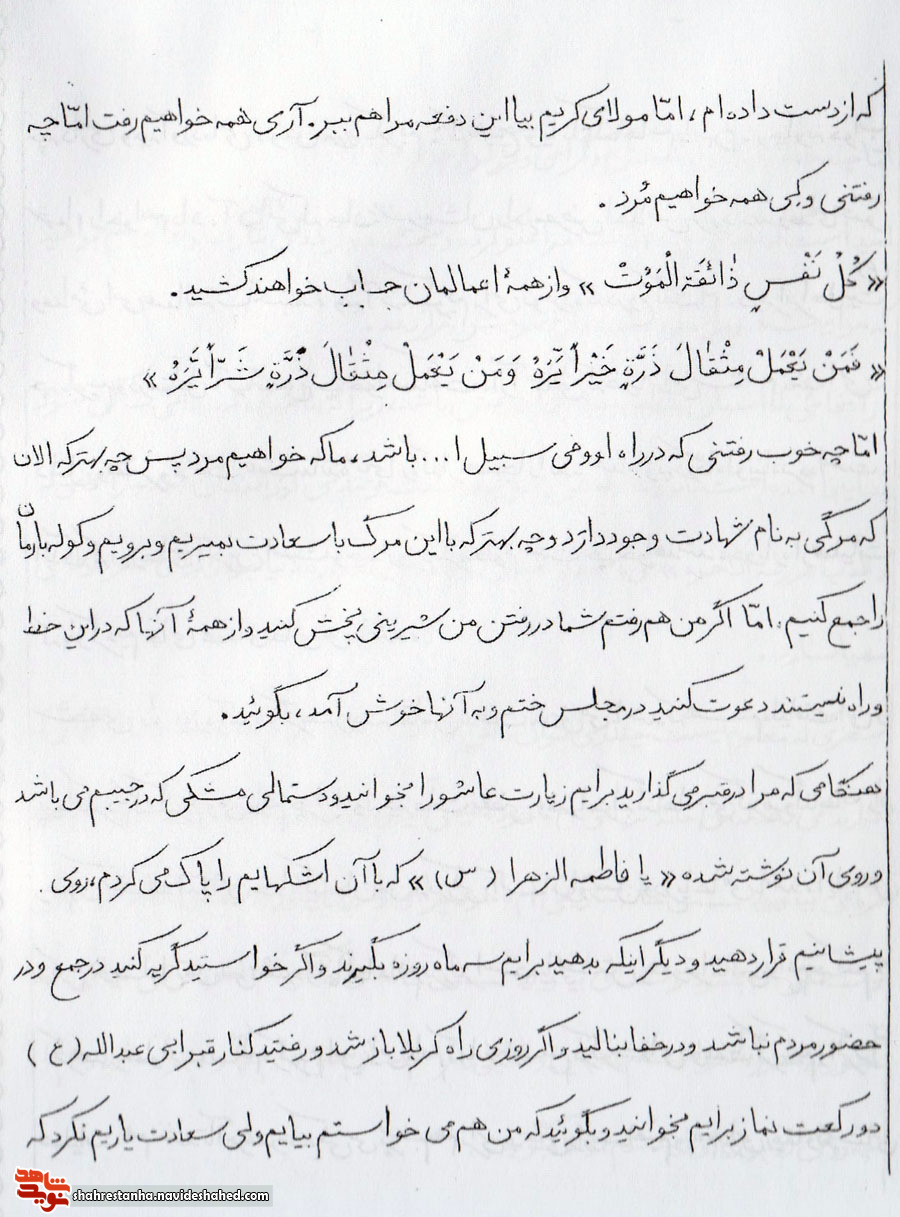 که از دست داده ام، امّا مولای کریم بیا این دفعه مرا هم ببر. آری همه خواهیم رفت امّا چه
رفتنی و کی همه خواهیم مُرد.
« کُلُّ نَفْسٍ ذٰائِقَة الْمَوْتْ » و از همهٔ اعمالمان حساب خواهند کشید.
« فَمَنْ یَعْمَلْ مِثْقٰالَ ذَرَّةٍ خَیْراً یَّرَهُ وَ مَنْ یَعْمَلْ مِثْقٰالَ ذَرَّةٍ شَرّاً یَّرَهُ »
امّا چه خوب رفتنی که در راه او و فی سبیل ا... باشد، ما که خواهیم مرد پس چه بهتر که الان
که مرگی به نام شهادت وجود دارد و چه بهتر که با این مرگ با سعادت بمیریم و برویم و کوله بارمان
را جمع کنیم. امّا اگر من هم رفتم شما در رفتن من شیرینی پخش کنید و از همهٔ آنها که در این خط
و راه نیستند دعوت کنید در مجلس ختم و به آنها خوش آمد، بگوئید.
هنگامی که مرا در قبر می گذارید برایم زیارت عاشورا بخوانید و دستمالی مشکی که در جیبم می باشد
و روی آن نوشته شده « یا فاطمه الزهرا (س) » که با آن اشکهایم را پاک می کردم، روی
پیشانیم قرار دهید و دیگر اینکه بدهید برایم سه ماه روزه بگیرند و اگر خواستید گریه کنید در جمع و در
حضور مردم نباشد و در خفا بنالید و اگر روزی راه کربلا باز شد و رفتید کنار قبر ابی عبدالله (ع)
دو رکعت نماز برایم بخوانید و بگوئید که من هم می خواستم بیایم ولی سعادت یاریم نکرد که
شاهد نوید
shahrestanha.navideshahed.com